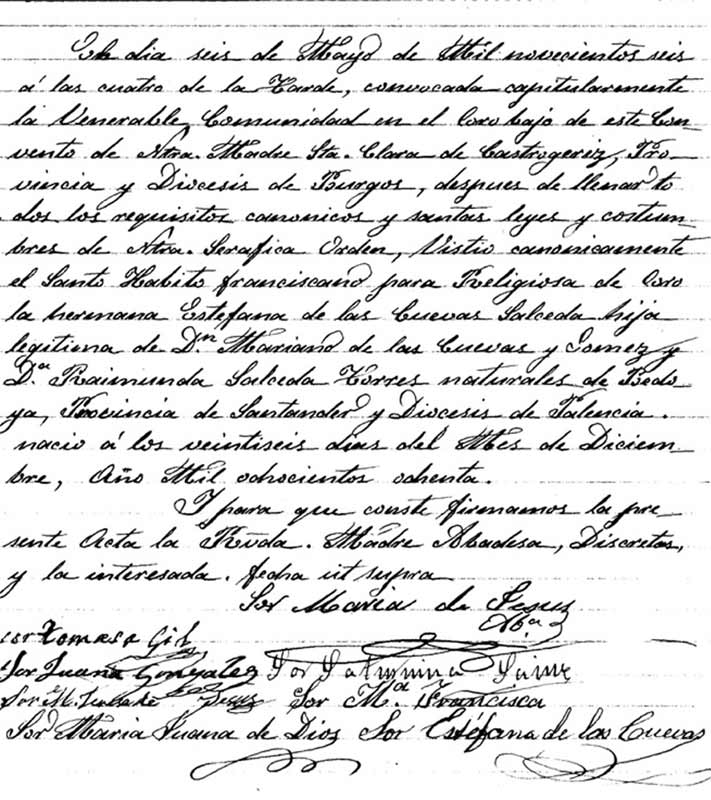 En dia seis de Mayo de Mil novecientos seis
á las cuatro de la Tarde, convocada capitularmente
la Venerable Comunidad en el Coro bajo de este Con-
vento de Ntra. Madre Sta. Clara de Castrogeriz, Pro-
vincia y Diocesis de Burgos, despues de llenar to
dos los requisitos canonicos y santas leyes y costum-
bres de Ntra. Serafica Orden, Vistio canonicamente
el Santo Habito franciscano para Religiosa de Coro
la hermana Estefana de las Cuevas Salceda hija
legitima de Dn Mariano de las Cuevas y Gomez y
Da Raimunda Salceda Torres naturales de Bedo-
ya, Provincia de Santander y Diocesis de Palencia.
nacio á los veintiseis dias del Mes de Diciem-
bre, Año Mil ochocientos ochenta.
Y para que conste firmamos la pre-
sente Acta la Rvda. Madre Abadesa, Discretas,
y la interesada. fecha ut supra
Sor Maria de Jesus
Aba
Sor Tomasa Gil
Sor Juana Gonzalez Sor
Sor M. Jesus Sor Ma. Francisca
Sor Maria Juana de Dios Sor Estéfana de las Cuevas